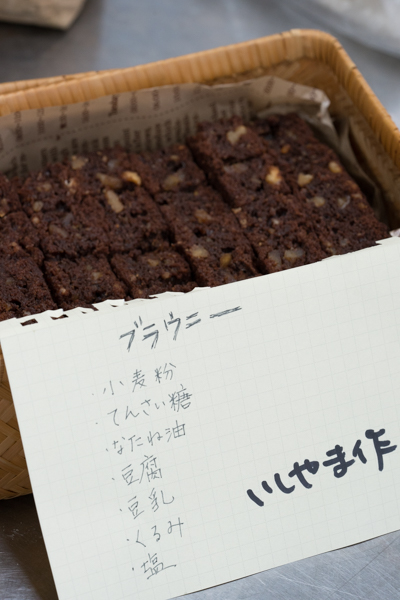 ブラウニー
・小麦粉
・てんさい糖
・なたね油
・豆腐
・豆乳
・くるみ
・塩
いしやま作